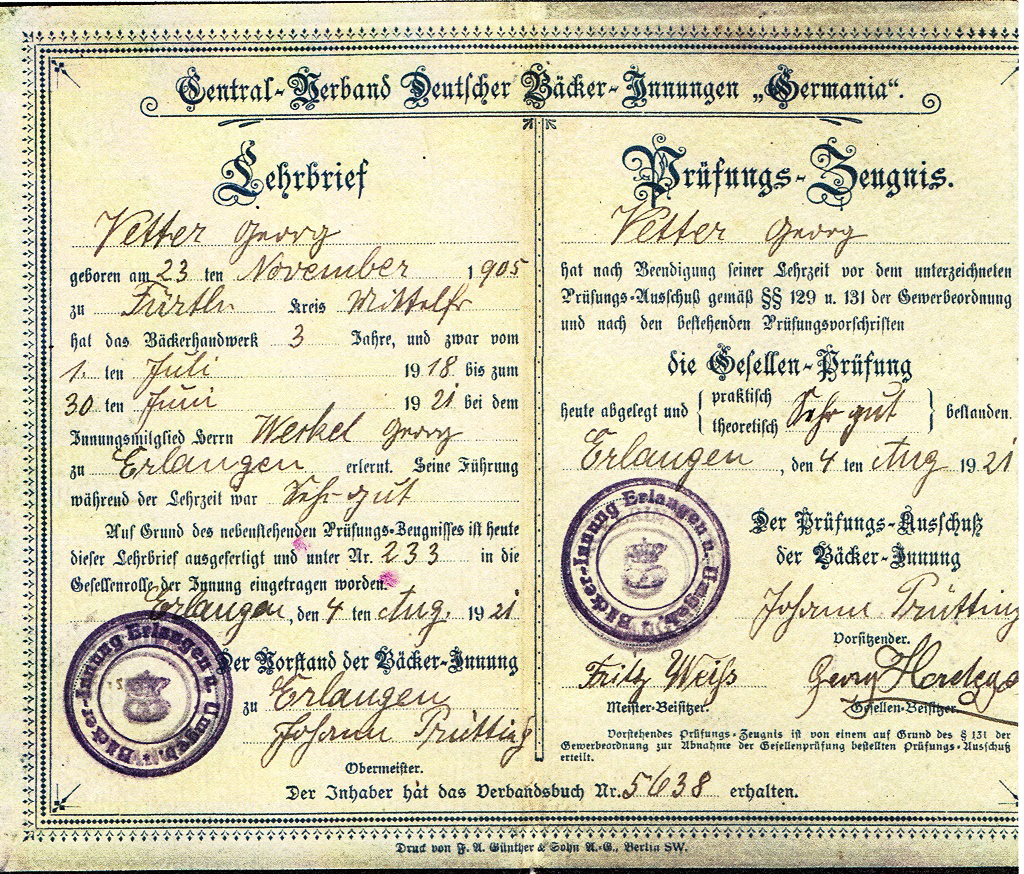 Central-Verband Deutscher Bäcker-Innungen „Germania“.
Lehrbrief
Vetter Georg
geboren am 23 ten November 1905
zu Fürth Kreis Mittelfr
hat das Bäckerhandwerk 3 Jahre, und zwar vom
1. ten Juli 1918 bis zum
30 ten Juni 1921 bei dem
Innungsmitglied Herrn Werkel Georg
zu Erlangen erlernt. Seine Führung
während der Lehrzeit war Sehr gut
Auf Grund des nebenstehenden Prüfungs-Zeugnisses ist heute
dieser Lehrbrief ausgefertigt und unter Nr. 233 in die
Gesellenrolle der Innung eingetragen worden.
Erlangen, den 4 ten Aug. 1921
Der Vorstand der Bäcker-Innung
zu Erlangen
Johann Prütting
Obermeister.
Bäcker-Innung Erlangen u. Umgebung
Prüfungs-Zeugnis.
Vetter Georg
hat nach Beendigung seiner Lehrzeit vor dem unterzeichneten
Prüfungs-Ausschuß gemäß §§ 129 u. 131 der Gewerbeordnung
und nach den bestehenden Prüfungsvorschriften
die Gesellen-Prüfung
heute abgelegt und { praktisch theoretisch Sehr gut } bestanden.
Erlangen, den 4 ten Aug 1921
Der Prüfungs-Ausschuß
der Bäcker-Innung
Johann Prütting
Vorsitzender.
Fritz Weiß Georg
Meister-Beisitzer. Gesellen-Beisitzer.
Bäcker-Innung Erlangen u. Umgebung
Vorstehendes Prüfungs-Zeugnis ist von einem auf Grund des § 131 der
Gewerbeordnung zur Abnahme der Gesellenprüfung bestellten Prüfungs-Ausschuß
erteilt.
Der Inhaber hat das Verbandsbuch Nr. 5638 erhalten.
Druck von F. A. Günther & Sohn A.-G., Berlin SW.